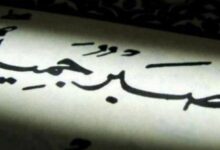 صَبْرٌ جَمِيل